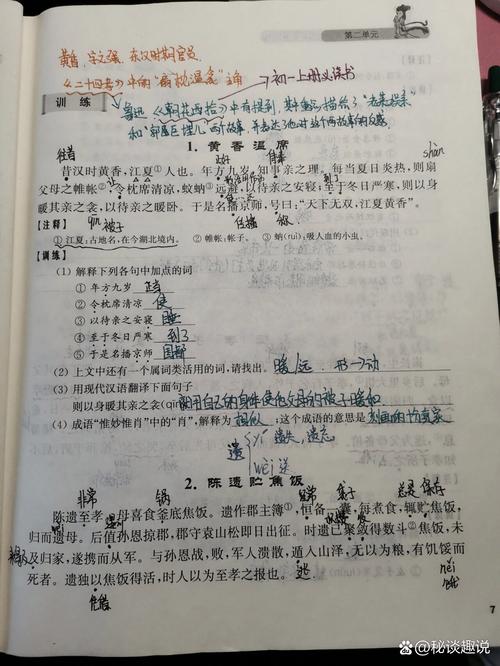 第二单元
黄香，字文强，东汉时期官员
《二十四孝》中的"扇枕温衾"主角 → 初一上册必读书
训练
鲁迅《朝花夕拾》中有提到，其中重点描绘了"老莱娱亲"
和"郭巨埋儿"两个故事，并表达了他对这两个故事的反感。
1. 黄香温席
往昔
侍奉
shān
昔汉时黄香，江夏①人也。年方九岁，知事亲之理。每当夏日炎热，则扇
父母之帷帐②，令枕席清凉，蚊蚋③远避，以待亲之安寝；至于冬日严寒，则以身
暖其亲之衾，以待亲之暖卧。于是名播京师，号曰："天下无双，江夏黄香"。
被子
传播
【注释】
①江夏：古地名，在今湖北境内。 ②帷帐：帐子。 ③蚋（ruì）：吸人血的小虫。
【训练】
（1）解释下列各句中加点的词
①年方九岁 正当
②令枕席清凉 使
③以待亲之安寝 睡
④至于冬日严寒 到了
⑤于是名播京师 国都
（2）上文中还有一个属词类活用的词，请找出。 暖/远 形→动
（3）用现代汉语翻译下面句子
则以身暖其亲之衾(qīn) 就用自己的身体使他父母的被子暖和
（4）成语"惟妙惟肖"中的"肖"，解释为 相似 ；这个成语的意思是
遗 yí 遗失，遗忘
wèi 送
2. 陈遗贮焦饭
非常
锅
经常
袋子
总是
保存
陈遗至孝，母喜食釜底焦饭。遗作郡主簿①，恒备一囊，每煮食，辄贮焦饭，
归而遗母。后值孙恩掠郡，郡守袁山松即日出征。时遗已聚敛得数斗②焦饭，未
及归家，遂携而从军。与孙恩战，败，军人溃散，遁入山泽，无以为粮，有饥馁而
死者。遗独以焦饭得活，时人以为至孝之报也。
逃
něi
7
@秘谈趣说